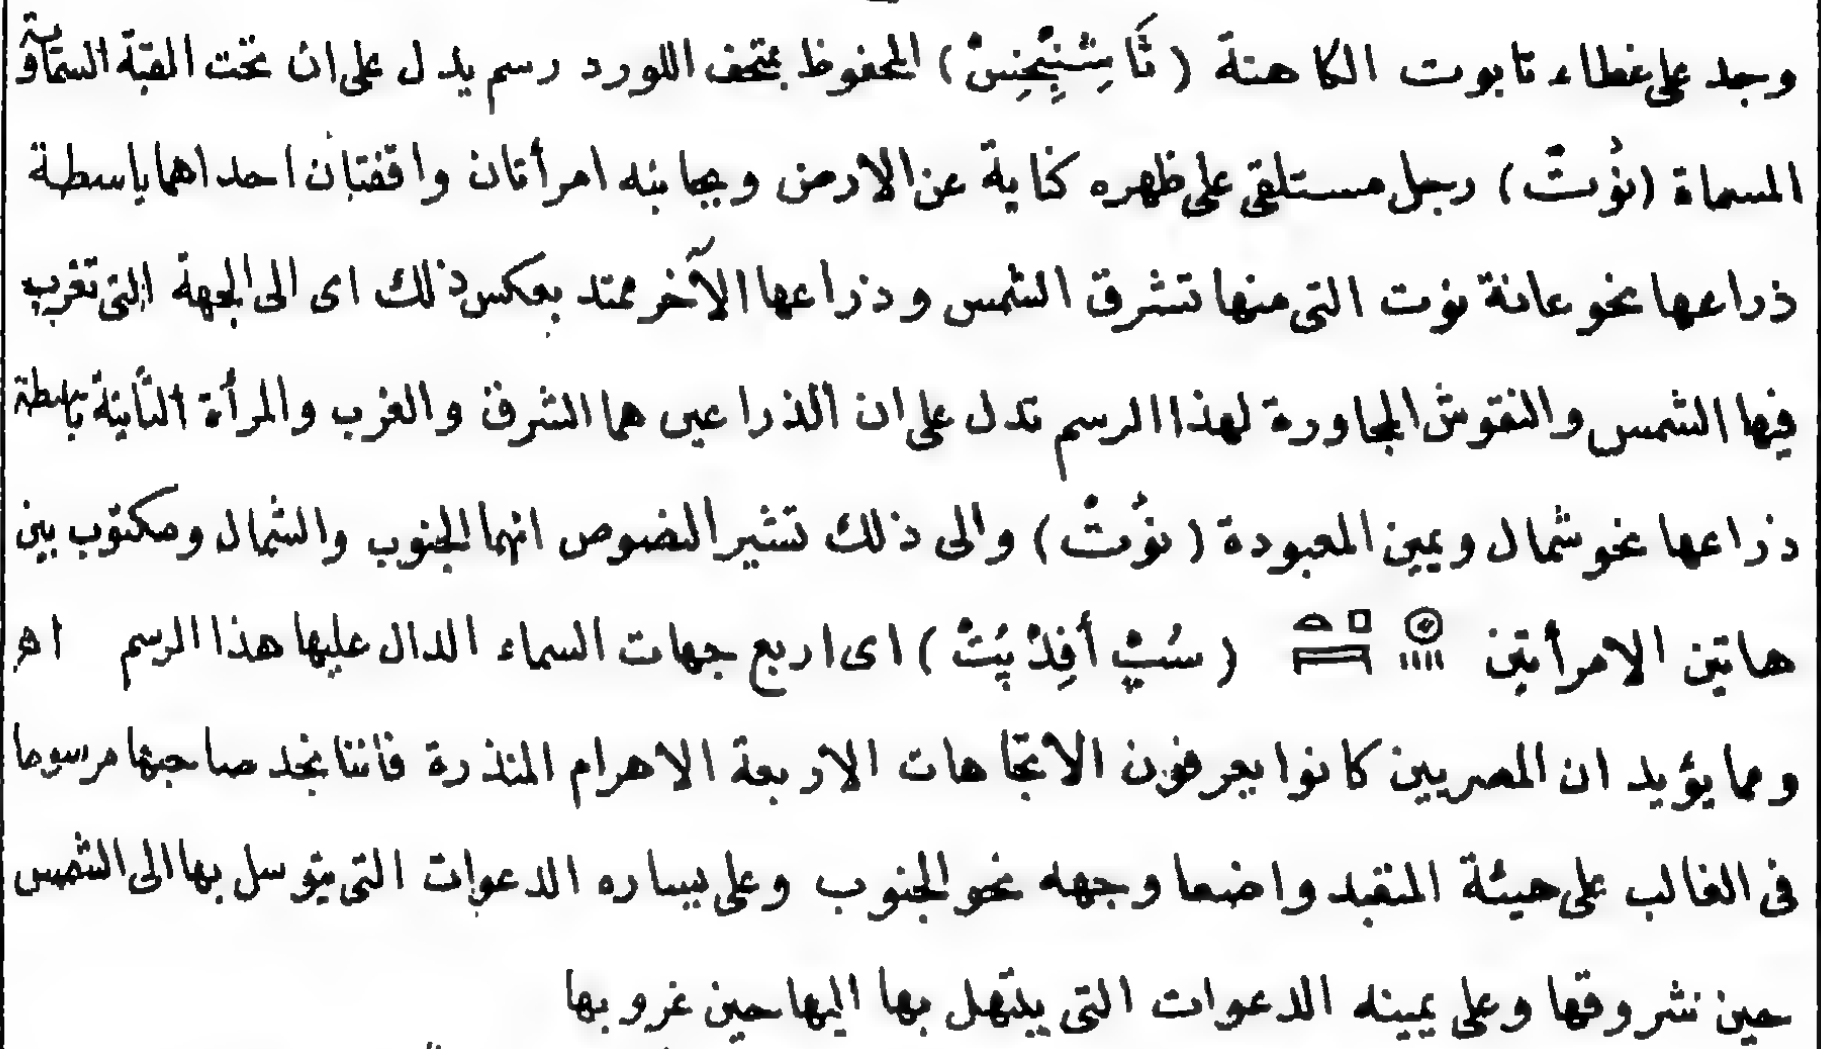 وجد على غطاء تابوت الكاهنة (تَاسِثْنِبْخِنِسْ) المحفوظ بمتحف اللورد رسم يدل على ان تحت القبة السماوية
المسماة (نُوتْ) رجل مستلقى على ظهره كناية عن الارض وبجانبه امرأتان واقفتان احداهما باسطة
ذراعها نحو عانة نوت التى منها تشرق الشمس وذراعها الآخر ممتد بعكس ذلك اى الى الجهة التى تغرب
فيها الشمس والنقوش المجاورة لهذا الرسم تدل على ان الذراعين هما الشرق والغرب والمرأة الثانية باسطة
ذراعها نحو شمال ويمين المعبودة (نُوتْ) والى ذلك تشير النصوص انهما الجنوب والشمال ومكتوب بين
هاتين الامرأتين 𓊖 𓏤𓏤𓏤𓏤 𓊪𓏏𓇯 (سُپْ أَفِدْ پِتْ) اى اربع جهات السماء الدال عليها هذا الرسم اهـ
ومما يؤيد ان المصريين كانوا يعرفون الاتجاهات الاربعة الاهرام المنذرة فاننا نجد صاحبها مرسوما
فى الغالب على هيئة المتعبد واضعا وجهه نحو الجنوب وعلى يساره الدعوات التى يتوسل بها الى الشمس
حين شروقها وعلى يمينه الدعوات التى يبتهل بها اليها حين غروبها